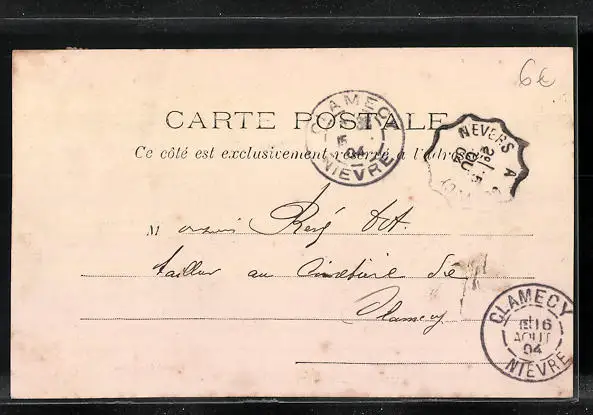 6€
CARTE POSTALE
Ce côté est exclusivement réservé à l'adresse
CLAMECY
04
NIÈVRE
NEVERS A
2°
04
Monsieur
au Cimetière de
Clamecy
CLAMECY
16
AOUT
04
NIÈVRE